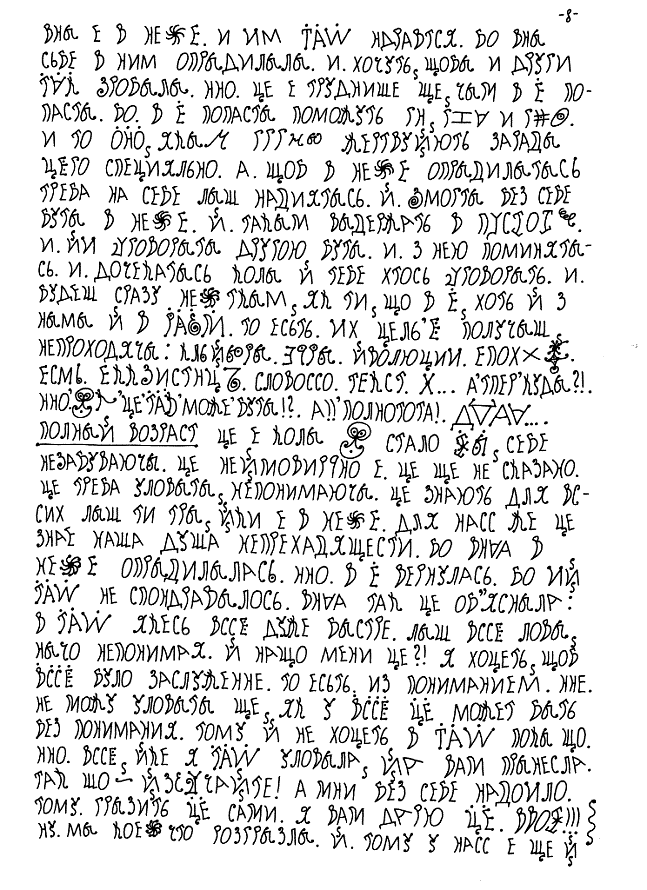 -8-
ВНЫ Е В НЕ Е. И ИМ ТАМ НДРАВТСЯ. БО ВНЫ
СЬВЕ В НИМ ОПРЫДИЛЫЛЫ. И. ХОЧУТЬ, ЩОБЫ И ДРУГИ
ТАК ЗРОБЫЛЫ. ННО. ЦЕ Е ТРУДНИШЕ ЩЕ, ЧЫМ В Ё ПО-
ПАСТЫ. БО. В Ё ПОПАСТЫ ПОМОЖУТЬ И
И ТО ОНО, ЯКЫМ ЖЕРТВУЙЮТЬ ЗАРАДЫ
ЦЁГО СПЕЦИЯЛЬНО. А. ЩОБ В НЕ Е ОПРЫДИЛЫТЫСЬ
ТРЕБА НА СЕБЕ ЛЫШ НАДИЯТЫСЬ. Й. ЗМОГТЫ БЕЗ СЕБЕ
БУТЫ В НЕ Е. Й. ТАКЫМ ВЫДЕРЖАТЬ В
И. ЙИ УГОВОРЫТЫ ДРУГОЮ БУТЫ. И. З НЕЮ ПОМИНЯТЫ-
СЬ. И. ДОЧЕКАТЫСЬ КОЛЫ Й ТЕБЕ ХТОСЬ УГОВОРЫТЬ. И.
БУДЕШ СРАЗУ. НЕ ТКЫМ, ЯК ТИ, ЩО В Ё, ХОТЬ Й З
НЫМЫ Й В. ТО ЕСЬТЬ. ИХ ЦЕЛЬ'Ё ПОЛУЧЫШ,
НЕПРОХОДЯЧЫ: ЭРРЫ. ЙВОЛЮЦИИ. ЕПОХ
ЕСМЬ. СЛОВОССО. ТЕКСТ. Х... А'ТПЕР'КУДЫ?!.
ННО. 'ЦЕ'ТАК'МОЖЕ'БУТЫ!?. А)) ПОЛНОТОТА!.
ПОЛНЫЙ ВОЗРАСТ ЦЕ Е КОЛЫ СТАЛО, СЕБЕ
НЕЗАБУВАЮЧЫ. ЦЕ НЕЙМОВИРЯНО Е. ЦЕ ЩЕ НЕ СКАЗАНО.
ЦЕ ТРЕБА УЛОВЫТЫ, НЕПОНИМАЮЧЫ. ЦЕ ЗНАЮТЬ ДЛЯ ВС-
СИХ ЛЫШ ТИ ТРЫ, ЙКИ Е В НЕ Е. ДЛЯ НАСС ЖЕ ЦЕ
ЗНАЕ НАША ДУША НЕПРЕХАДЯЩЕСТИ. БО ВНЫА В
НЕ Е ОПРЫДИЛЫЛАСЬ. ННО. В Ё ВЕРНУЛАСЬ. БО ИЙ
ТАМ НЕ СПОНДРАВЫЛОСЬ. ВНЫА ТАК ЦЕ ОБ"ЯСНЫЛА:
В ТАМ ЯКЕСЬ ВССЁ ДУЖЕ БЫСТРЕ. ЛЫШ ВССЁ ЛОВЫ,
НЫЧО НЕПОНИМАЯ. Й НАЩО МЕНИ ЦЕ?! Я ХОЦЕТЬ, ЩОБ
ВССЁ БУЛО ЗАСЛУЖЕННЕ. ТО ЕСЬТЬ. ИЗ ПОНИМАНИЕМ. ННЕ.
НЕ МОЖУ УЛОВЫТЫ ЩЕ, ЯК У ВССЁ ЦЁ МОЖЕТ БЫТЬ
БЕЗ ПОНИМАНИЯ. ТОМУ Й НЕ ХОЦЕТЬ В ТАМ ПОКЫ ЩО.
ННО. ВССЁ, ЙКЕ Я ТАМ УЛОВЫЛА, ВАМ ПРЫНЕСЛА.
ТАК ЩО — ЙЗУЧАЙТЕ! А МНИ БЕЗ СЕБЕ НАДОИЛО.
ТОМУ. ГРЫЗИТЬ ЦЁ САМИ. Я ВАМ ДАРЮ ЦЁ.
НУ. МЫ КОЕ ЧТО РОЗГРЫЗЛЫ. Й. ТОМУ У НАСС Е ЩЕ Й